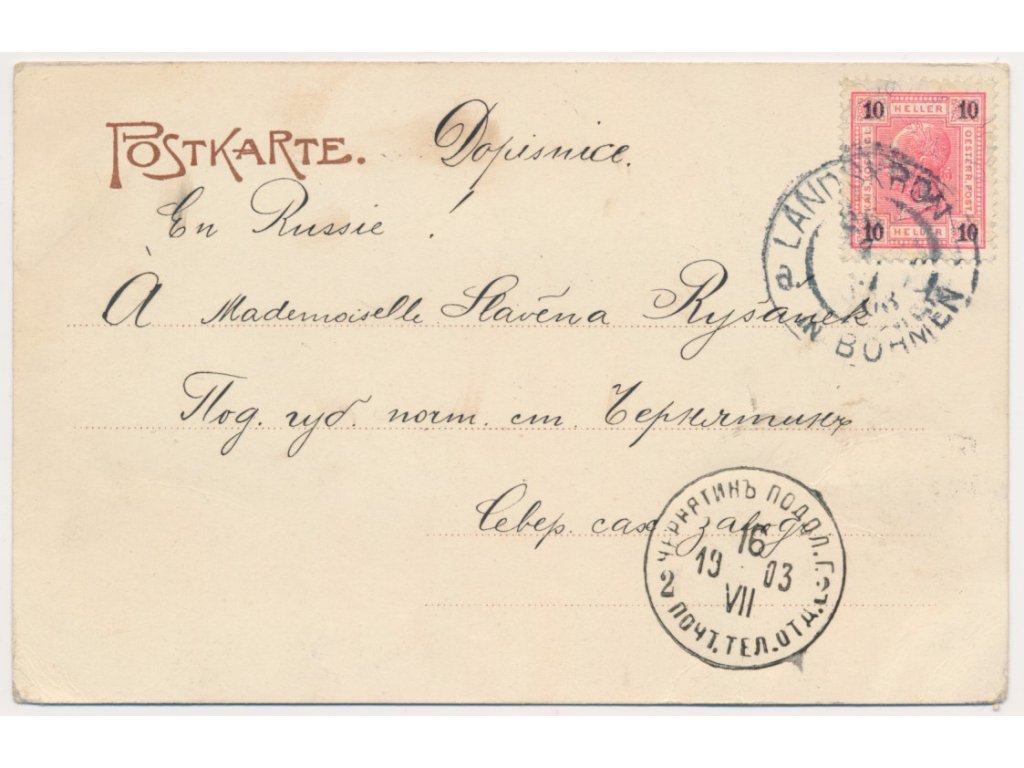 POSTKARTE. Dopisnice.
En Russie!
À Mademoiselle Slavěna Ryšánek
Под. губ. почт. ст. Чернятинъ
Север. сах. заводъ
10 HELLER 10
KAISERL. KÖNIGL. OESTERR. POST
10 HELLER 10
LANDSKRON
IN BÖHMEN
ЧЕРНЯТИНЪ ПОДОЛ. Г.
16
19 03
VII
2 ПОЧТ. ТЕЛ. ОТД. 2